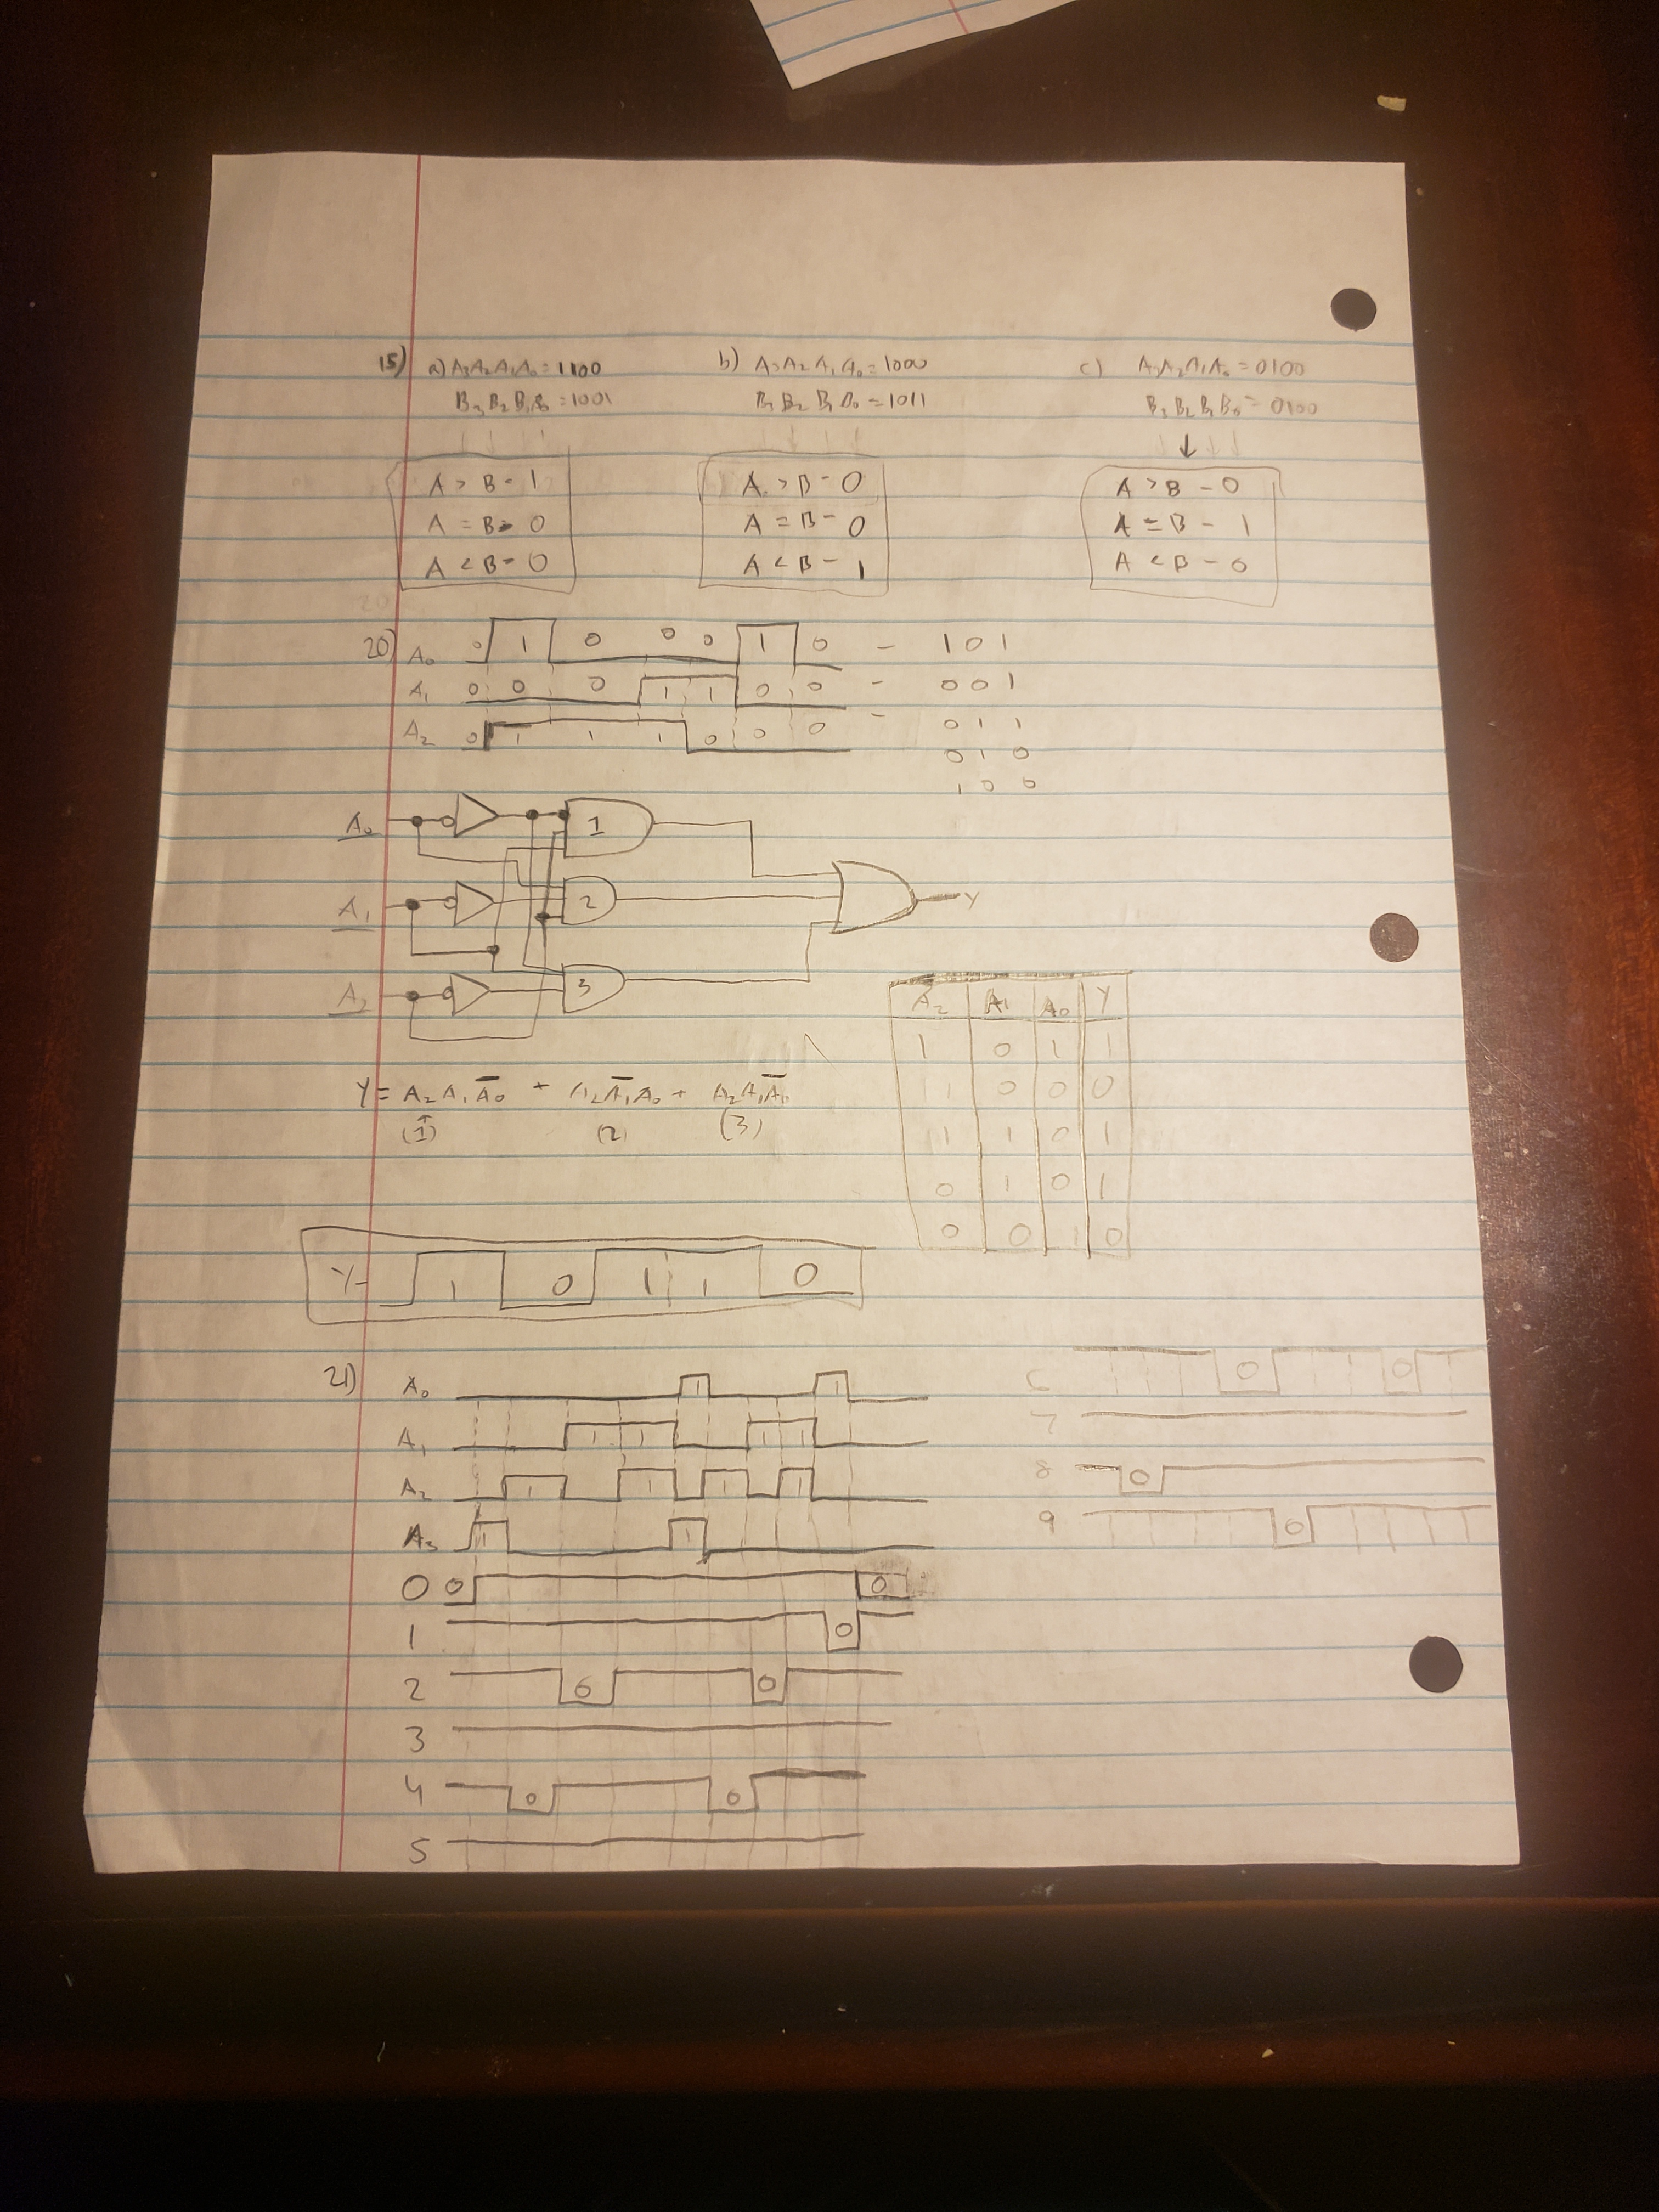 15) a) A₃A₂A₁A₀ = 1100 b) A₃A₂A₁A₀ = 1000 c) A₃A₂A₁A₀ = 0100
B₃B₂B₁B₀ = 1001 B₃B₂B₁B₀ = 1011 B₃B₂B₁B₀ = 0100
↓
A > B - 1 A > B - 0 A > B - 0
A = B - 0 A = B - 0 A = B - 1
A < B - 0 A < B - 1 A < B - 0
20) A₀ 0 1 0 0 0 1 0 - 101
A₁ 0 0 0 1 1 0 0 - 001
A₂ 0 1 1 1 0 0 0 - 011
010
100
A₀ 1
A₁ 2 Y
A₂ 3
A₂ A₁ A₀ Y
1 0 1 1
1 0 0 0
1 1 0 1
0 1 0 1
0 0 1 0
Y = A₂A₁A̅₀ + A₂A̅₁A₀ + A₂A₁A̅₀
(1) (2) (3)
Y- 1 0 1 1 0
21) A₀ 1 1
A₁ 1 1 1 1
A₂ 1 1 1 1
A₃ 1 1
0 0 0
1 0
2 0 0
3
4 0 0
5
6 0 0
7
8 0
9 0